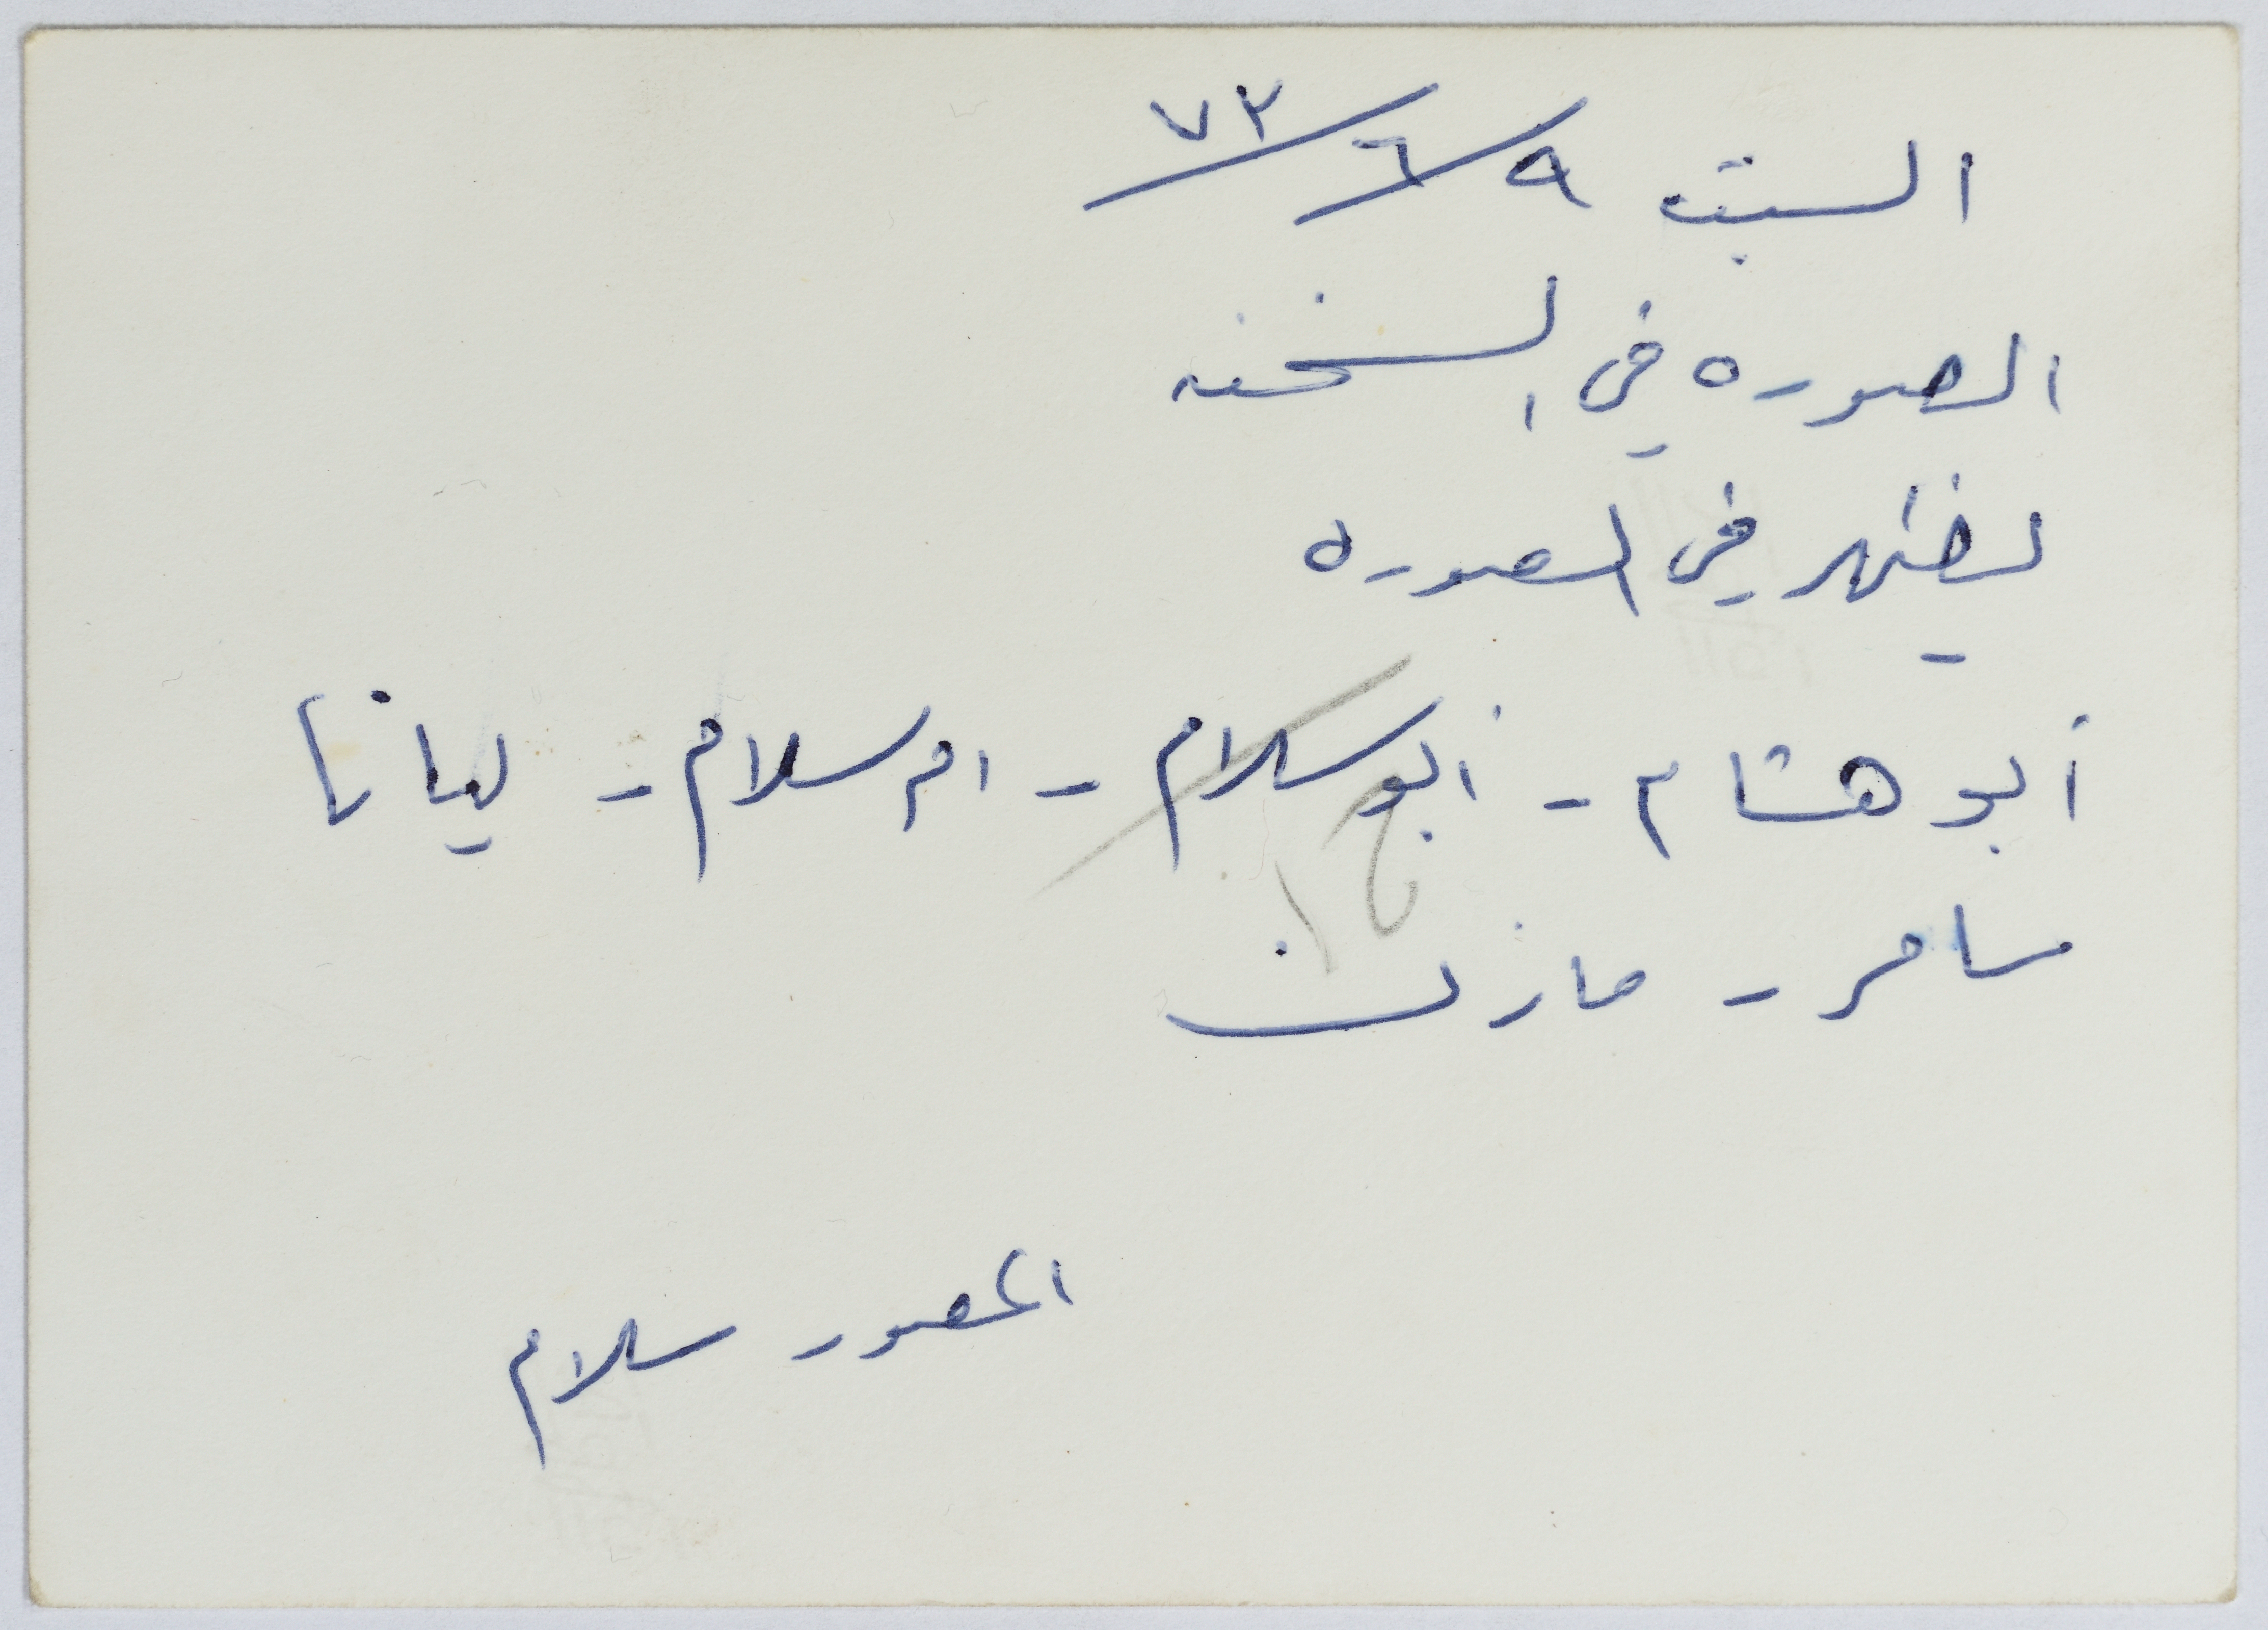 السبت ٩/٦/٧٣
الصوره في السخنه
يظهر في الصوره
أبو هشام - أبو سلام - ام سلام - ليانا
سامر - مازن
المصور سلام